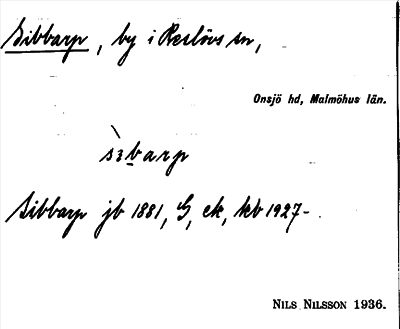 Sibbarp, by i Reslövs sn,
Onsjö hd, Malmöhus län.
sìbarp
Sibbarp jb 1881, G, ek, kb 1927-
NILS NILSSON 1936.